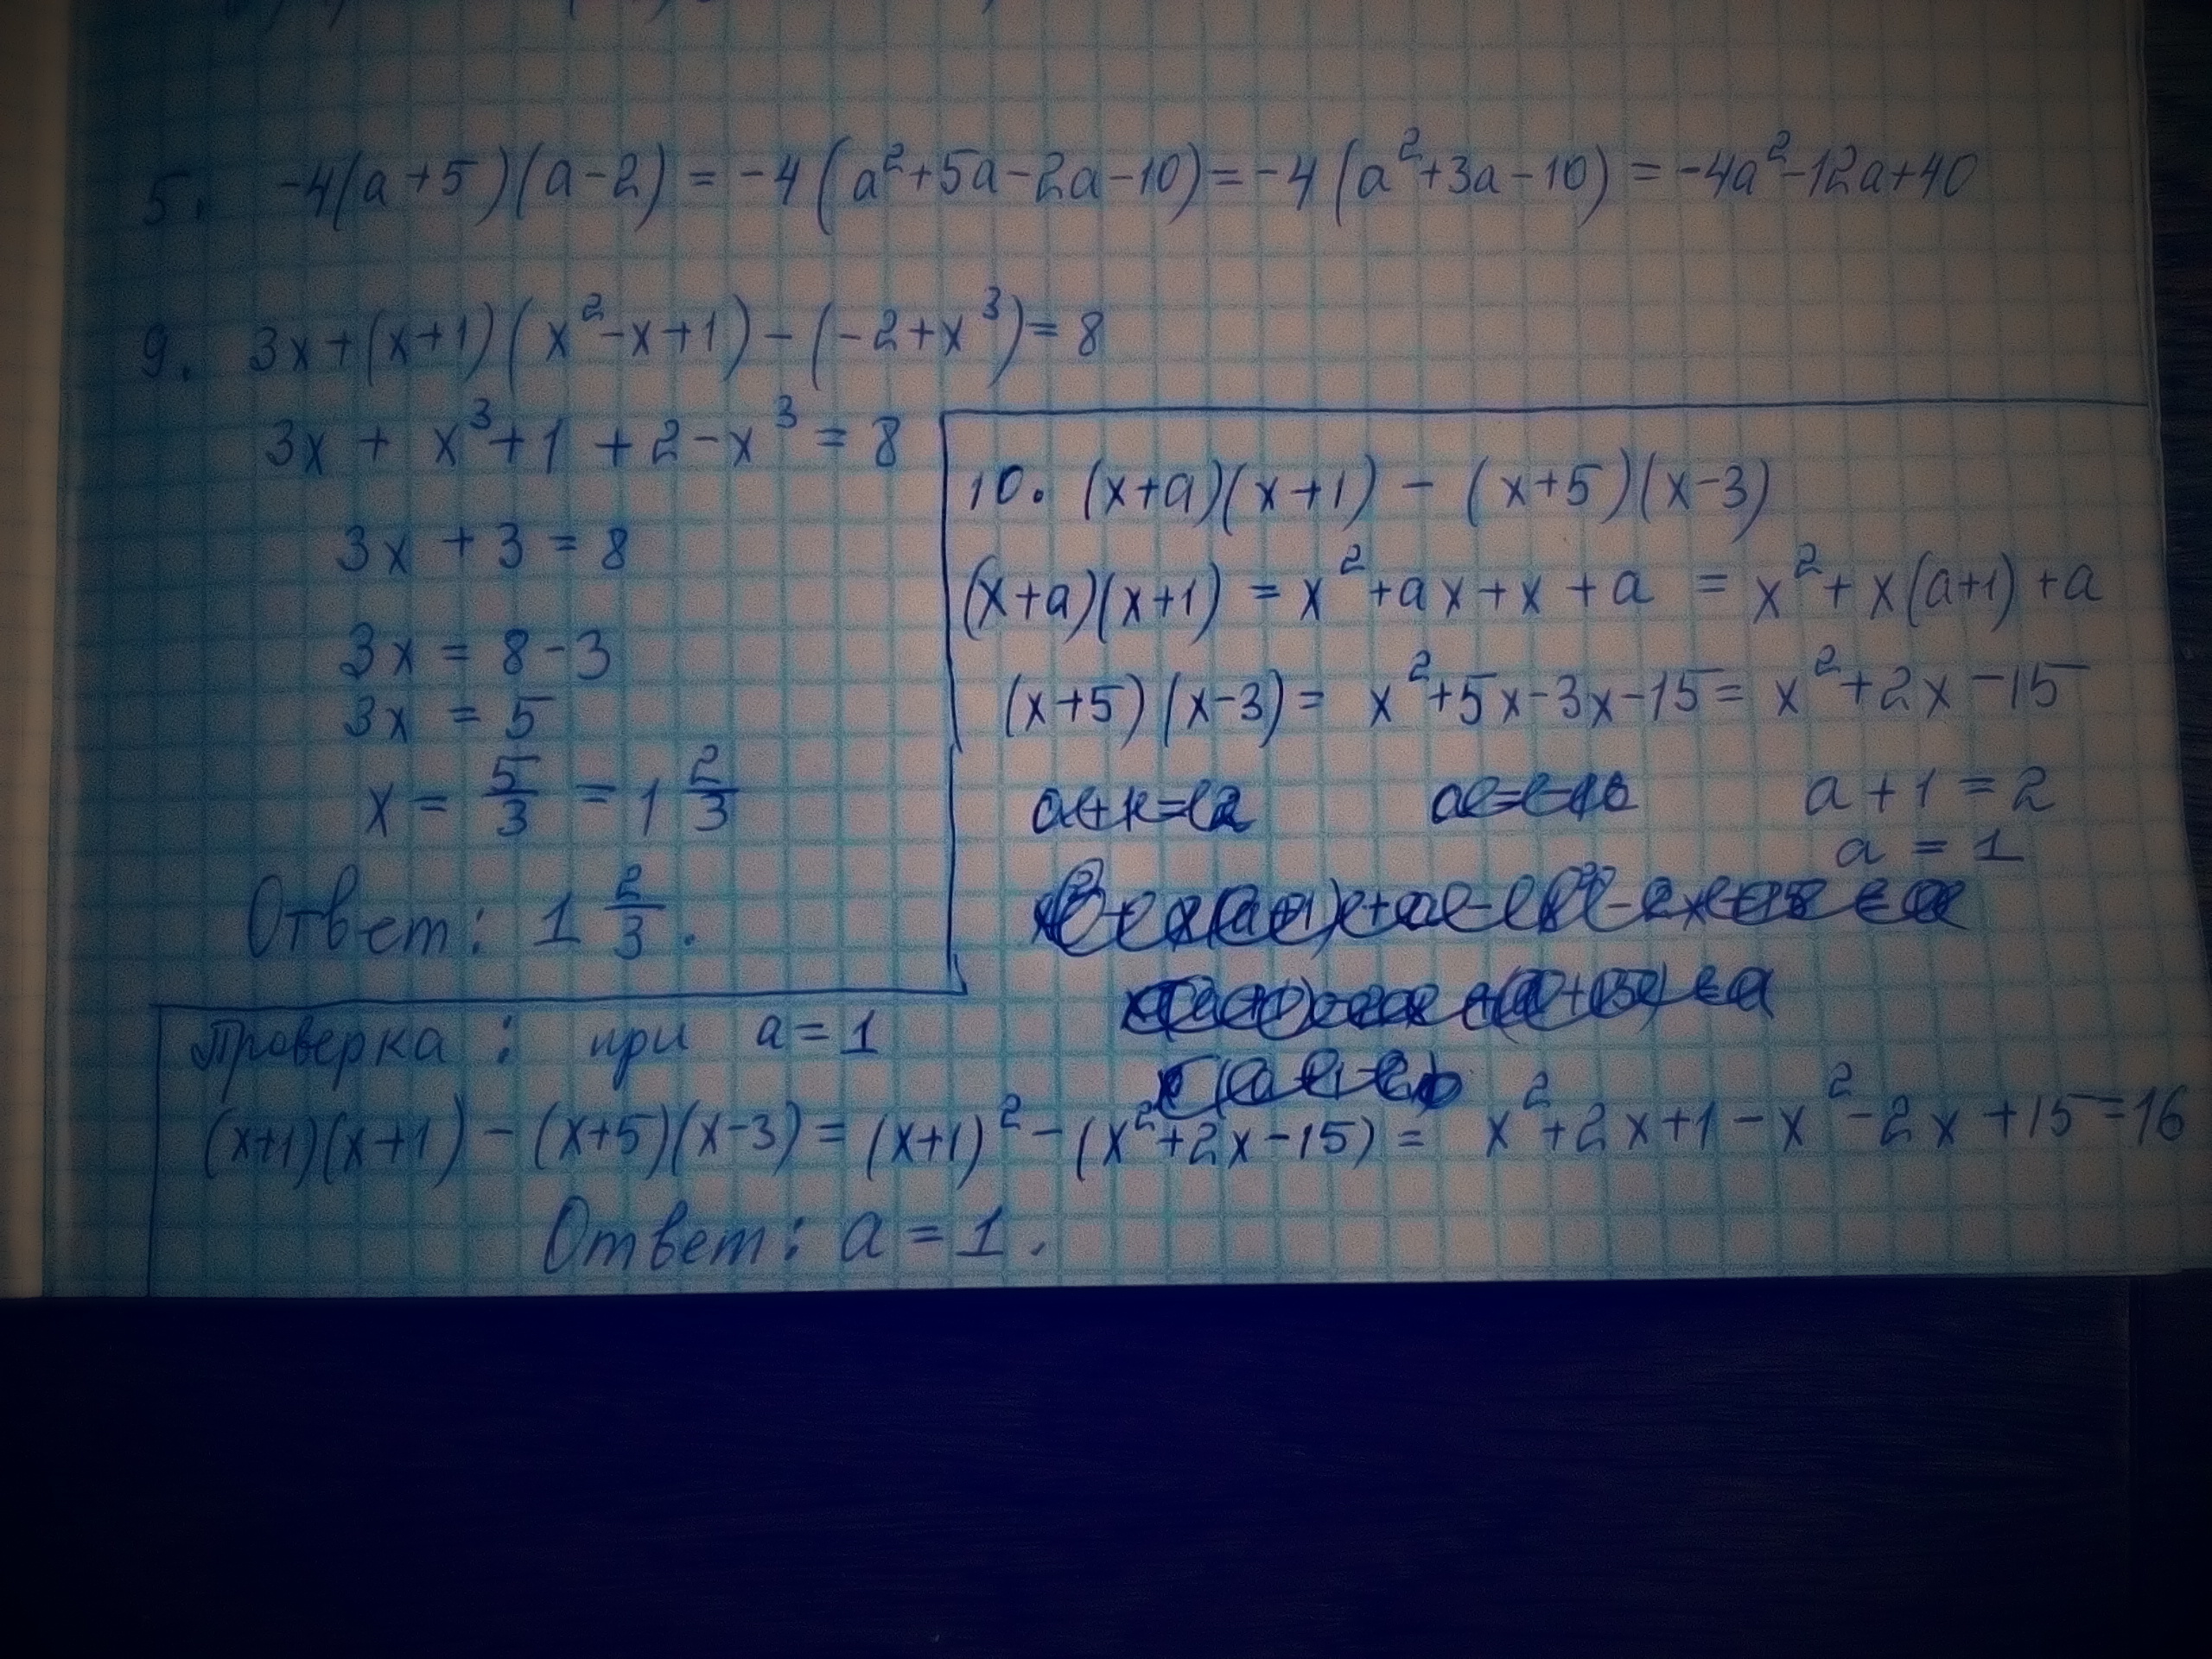 5. -4(a+5)(a-2) = -4(a²+5a-2a-10) = -4(a²+3a-10) = -4a²-12a+40
9. 3x+(x+1)(x²-x+1)-(-2+x³)=8
3x + x³+1 +2-x³ = 8
3x + 3 = 8
3x = 8-3
3x = 5
x = 5/3 = 1 2/3
Ответ: 1 2/3.
10. (x+a)(x+1) - (x+5)(x-3)
(x+a)(x+1) = x²+ax+x+a = x²+x(a+1)+a
(x+5)(x-3) = x²+5x-3x-15 = x²+2x-15
a+1=2
a = 1
Проверка: при a=1
(x+1)(x+1)-(x+5)(x-3) = (x+1)²-(x²+2x-15) = x²+2x+1-x²-2x+15=16
Ответ: a = 1.